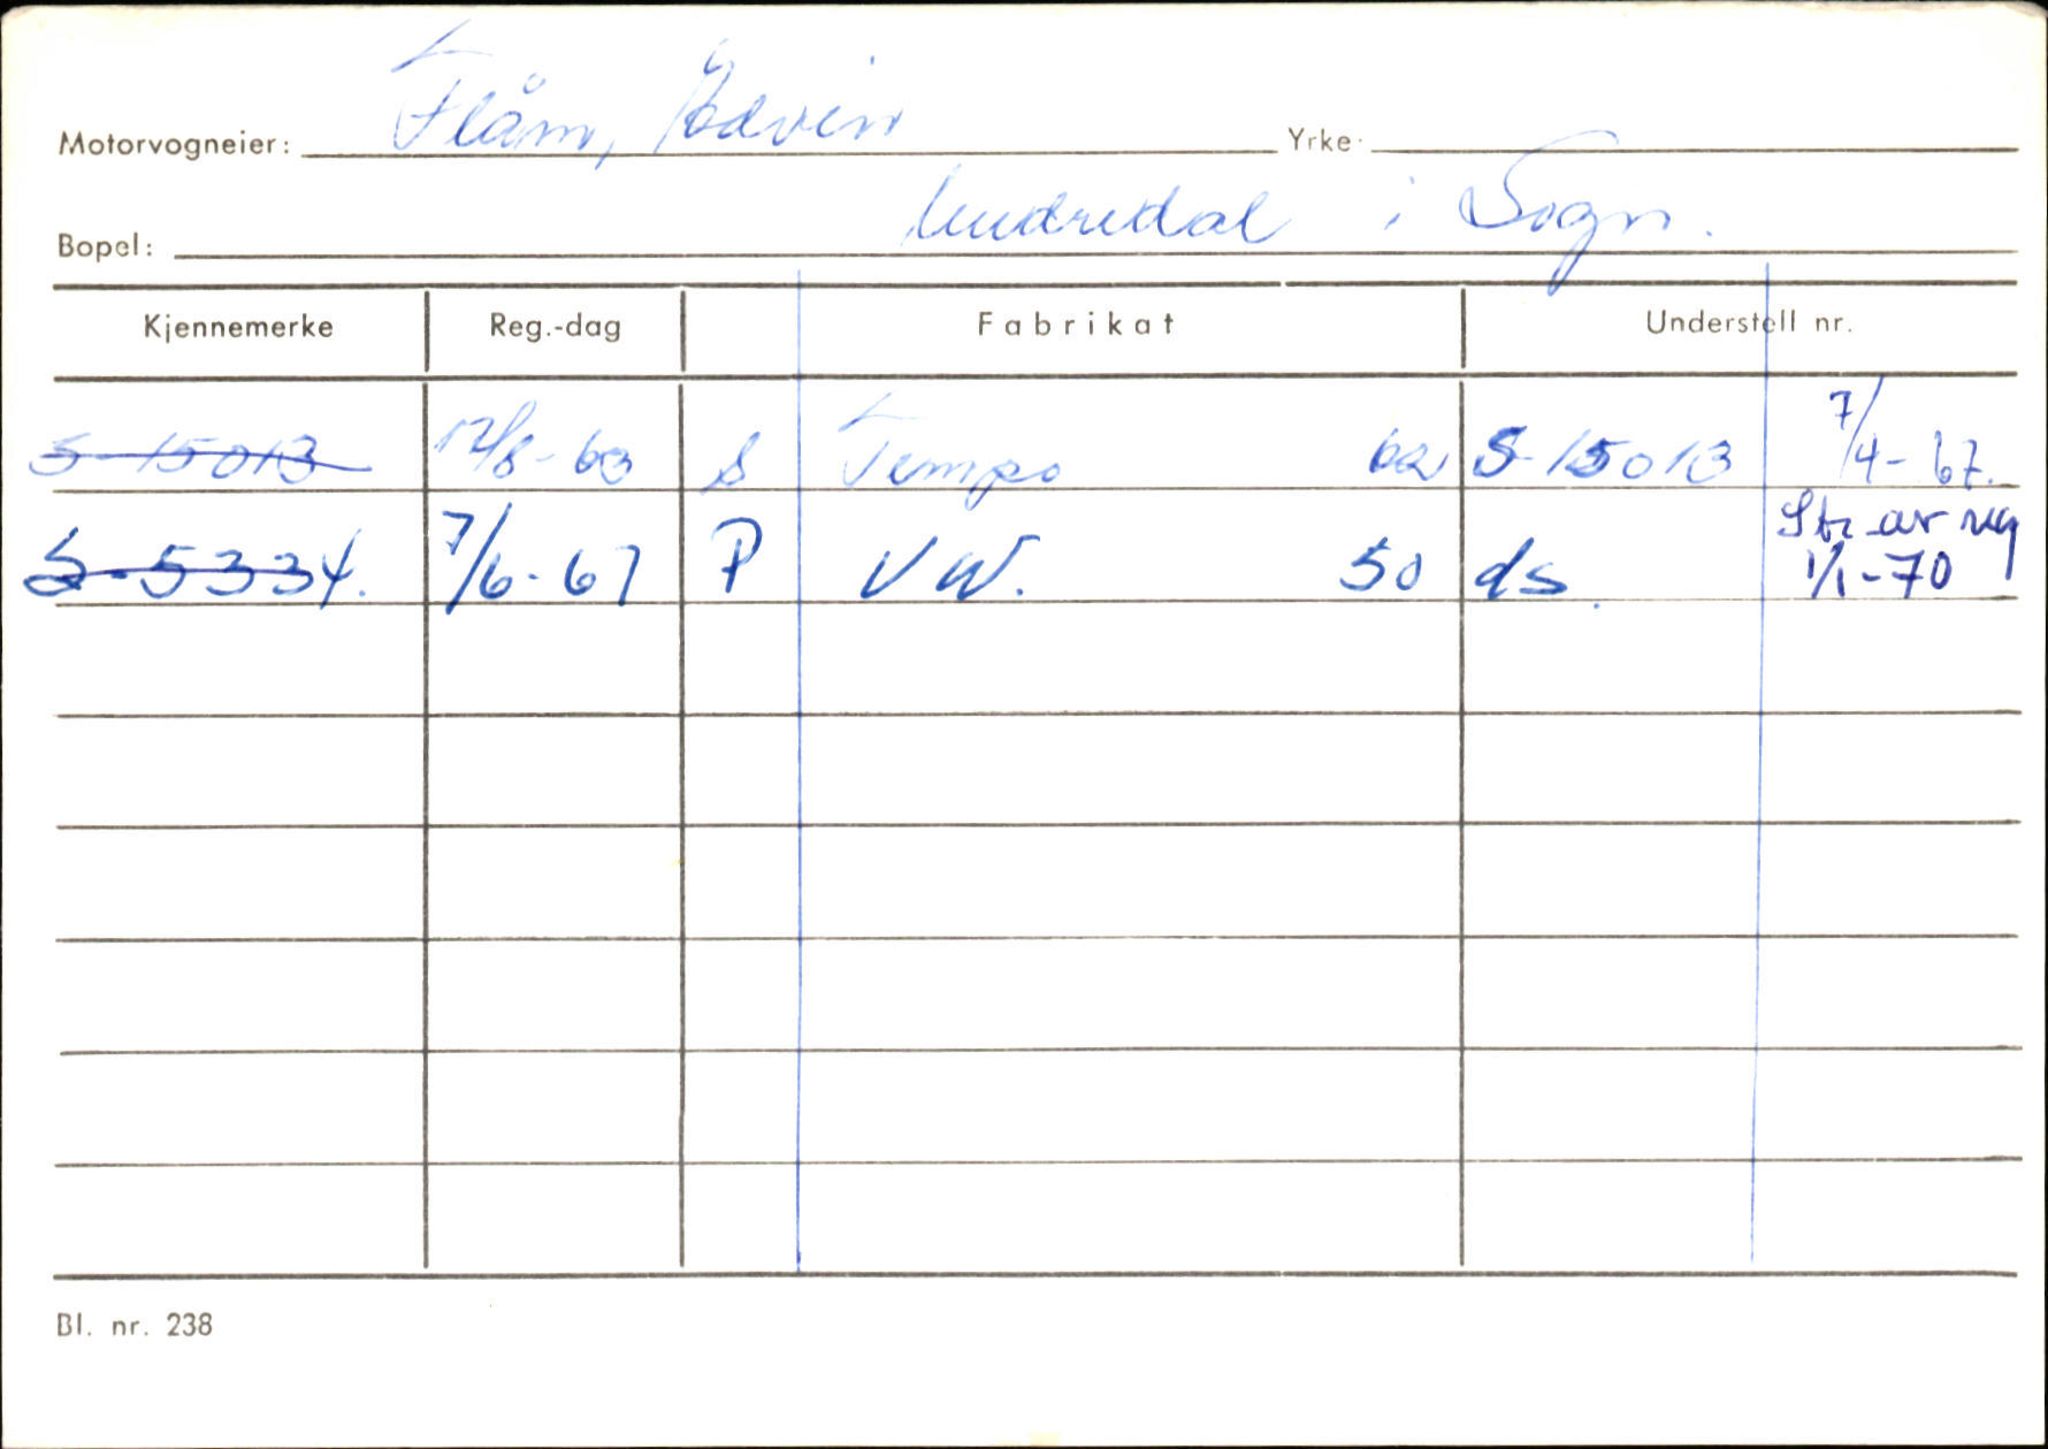 Motorvogneier: Flåm, Edvin Yrke:
Bopel: Undredal i Sogn.
Kjennemerke Reg.-dag Fabrikat Understell nr.
S-15013 12/8-63 S Tempo 62 S-15013 7/4-67.
S-5334. 7/6-67 P VW. 50 ds. Str av reg 1/1-70
Bl. nr. 238